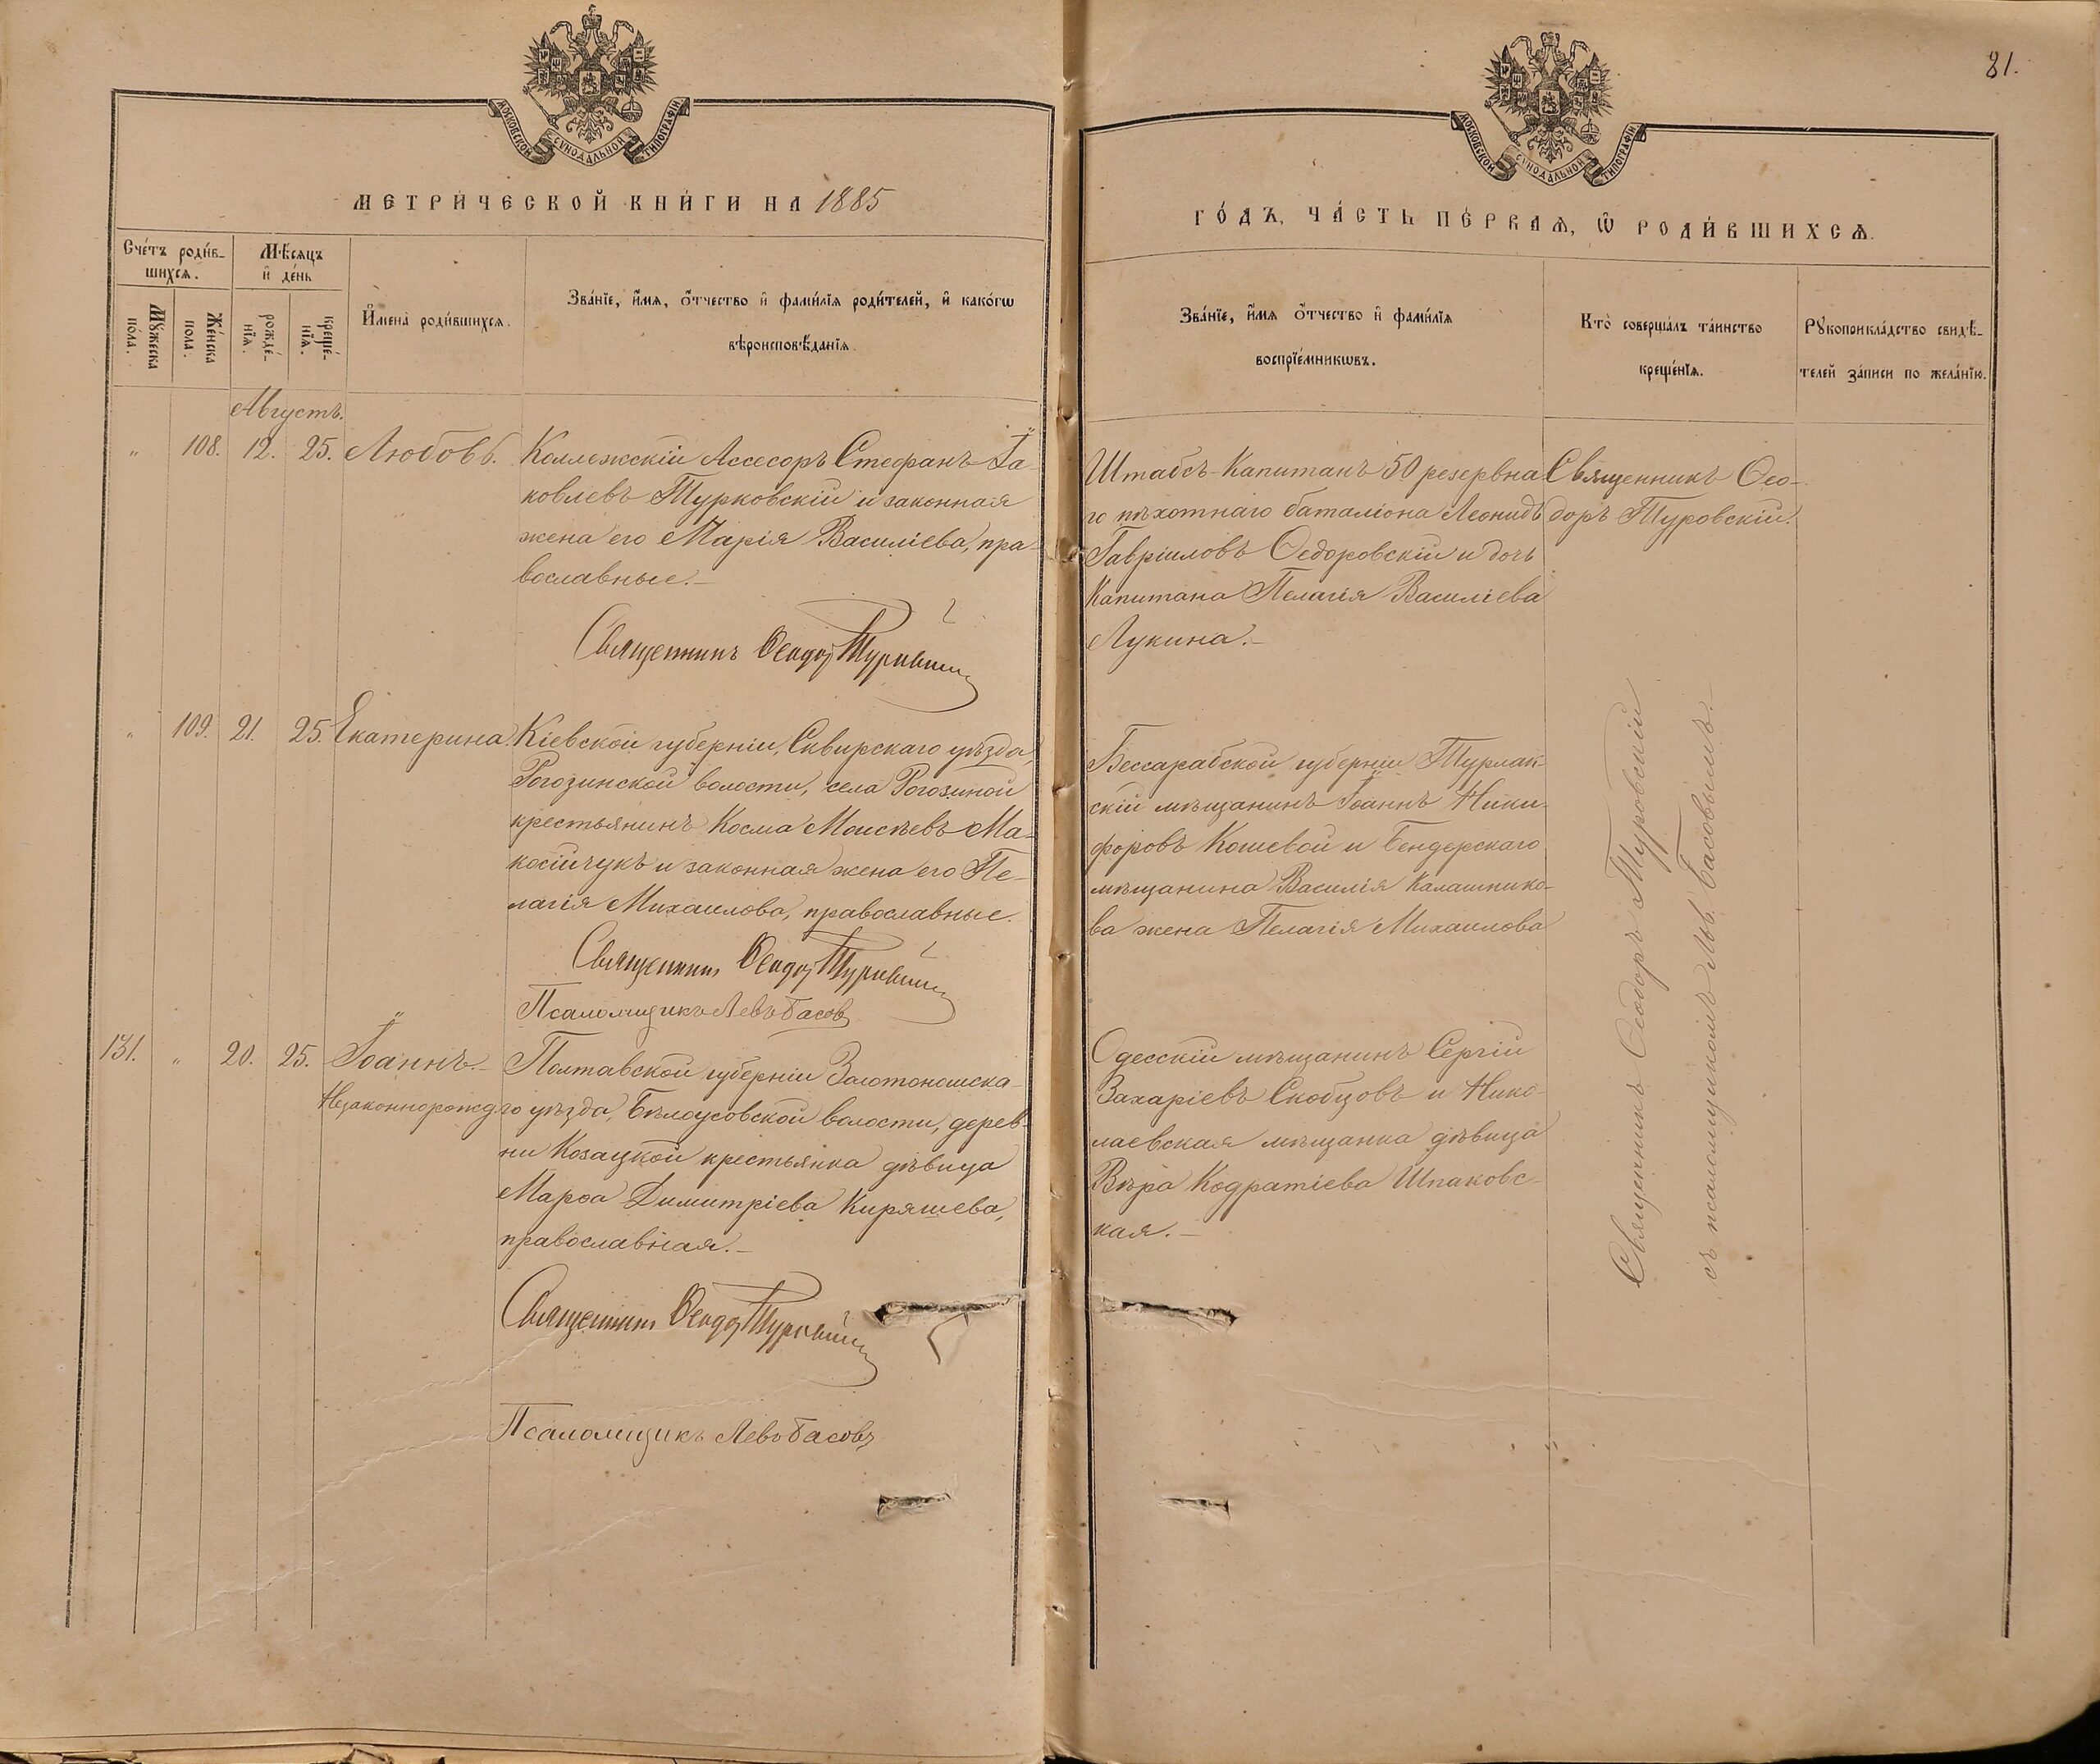 81.
МОСКОВСКОЙ СѴНОДАЛЬНОЙ ТИПОГРАФІИ
МОСКОВСКОЙ СѴНОДАЛЬНОЙ ТИПОГРАФІИ
МЕТРИ́ЧЕСКОЙ КНИ́ГИ НА 1885
ГО́ДЪ, ЧА́СТЬ ПЕ́РВАѦ, Ѽ РОДИ́ВШИХСѦ.
Сче́тъ роди́в-
шихсѧ.
Мꙋ́жеска
по́ла.
Же́нска
пола.
Мѣ́сѧцъ
и҆ де́нь
рожде́-
нїѧ.
креще́-
нїѧ.
И҆мена̀ роди́вшихсѧ.
Зва́нїе, и҆́мѧ, ѻ҆́тчество и҆ фами́лїѧ роди́телей, и҆ како́гѡ
вѣроисповѣ́данїѧ.
Зва́нїе, и҆́мѧ ѻ҆́тчество и҆ фами́лїѧ
воспрїе́мникѡвъ.
Кто̀ соверша́лъ та́инство
креще́нїѧ.
Рꙋкоприкла́дство свидѣ́-
телей за́писи по жела́нїю.
Августъ.
" 108. 12. 25. Любовь.
Коллежскій Ассесоръ Стефанъ Іа-
ковлевъ Турковскій и законная
жена его Марія Василіева, пра-
вославные.—
Священникъ Ѳеодоръ Туровскій
Штабсъ-Капитанъ 50 резервна-
го пѣхотнаго баталіона Леонидъ
Гавріиловъ Ѳедоровскій и дочь
Капитана Пелагія Василіева
Лукина.—
Священникъ Ѳео-
доръ Туровскій.
" 109. 21. 25. Екатерина.
Кіевской губерніи, Сквирскаго уѣзда,
Рогозинской волости, села Рогозиной
крестьянинъ Косма Моисѣевъ Ма-
косійчукъ и законная жена его Пе-
лагія Михаилова, православные.
Священникъ Ѳеодоръ Туровскій
Псаломщикъ Левъ Басовъ
Бессарабской губерніи Турлак-
скій мѣщанинъ Іоаннъ Ники-
форовъ Кошевой и Бендерскаго
мѣщанина Василія Калашнико-
ва жена Пелагія Михаилова
131. " 20. 25. Іоаннъ.—
Незаконнорожд.
Полтавской губерніи Золотоношска-
го уѣзда, Бѣлоусовской волости, дерев-
ни Козацкой крестьянка дѣвица
Марѳа Димитріева Киряшева,
православная.—
Священникъ Ѳеодоръ Туровскій
Псаломщикъ Левъ Басовъ
Одесскій мѣщанинъ Сергій
Захаріевъ Скобцовъ и Нико-
лаевская мѣщанка дѣвица
Вѣра Кодратіева Шпаковс-
кая.—
Священникъ Ѳеодоръ Туровскій
съ псаломщикомъ Льв. Басовымъ.—